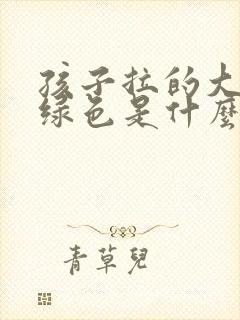 孩子拉的大
绿色是什麽
青草兒